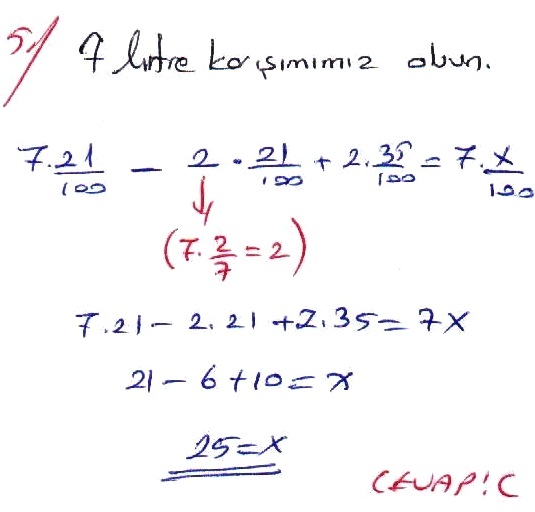 5) 7 litre karışımımız olsun.
7.21/100 - 2.21/100 + 2.35/100 = 7.x/100
(7.2/7=2)
7.21 - 2.21 + 2.35 = 7x
21 - 6 + 10 = x
25 = x
CEVAP: C